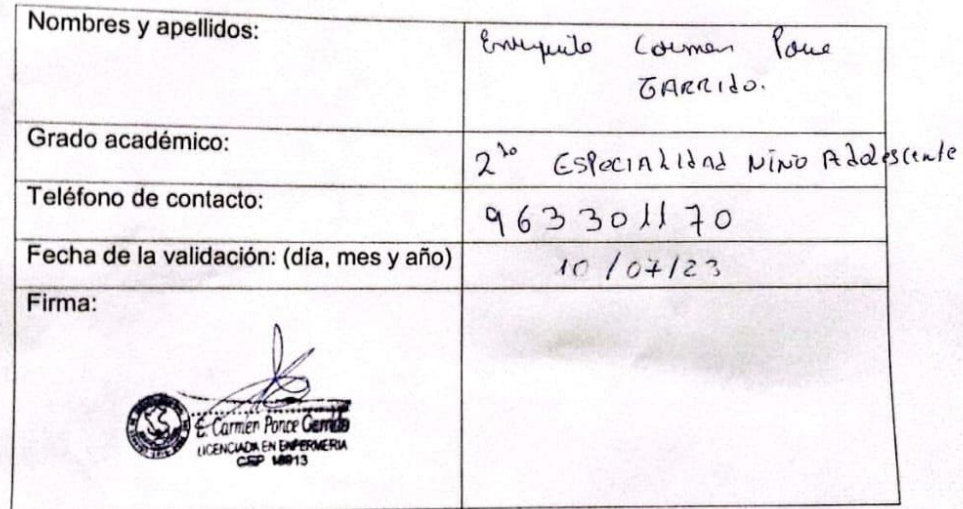 Nombres y apellidos:
Carmen Ponce
GARRIdO.
Grado académico:
2da ESPeciALIdAd NiÑO AdOlescente
Teléfono de contacto:
963301170
Fecha de la validación: (día, mes y año)
10/07/23
Firma:
E. Carmen Ponce Garrido
LICENCIADA EN ENFERMERIA
CEP